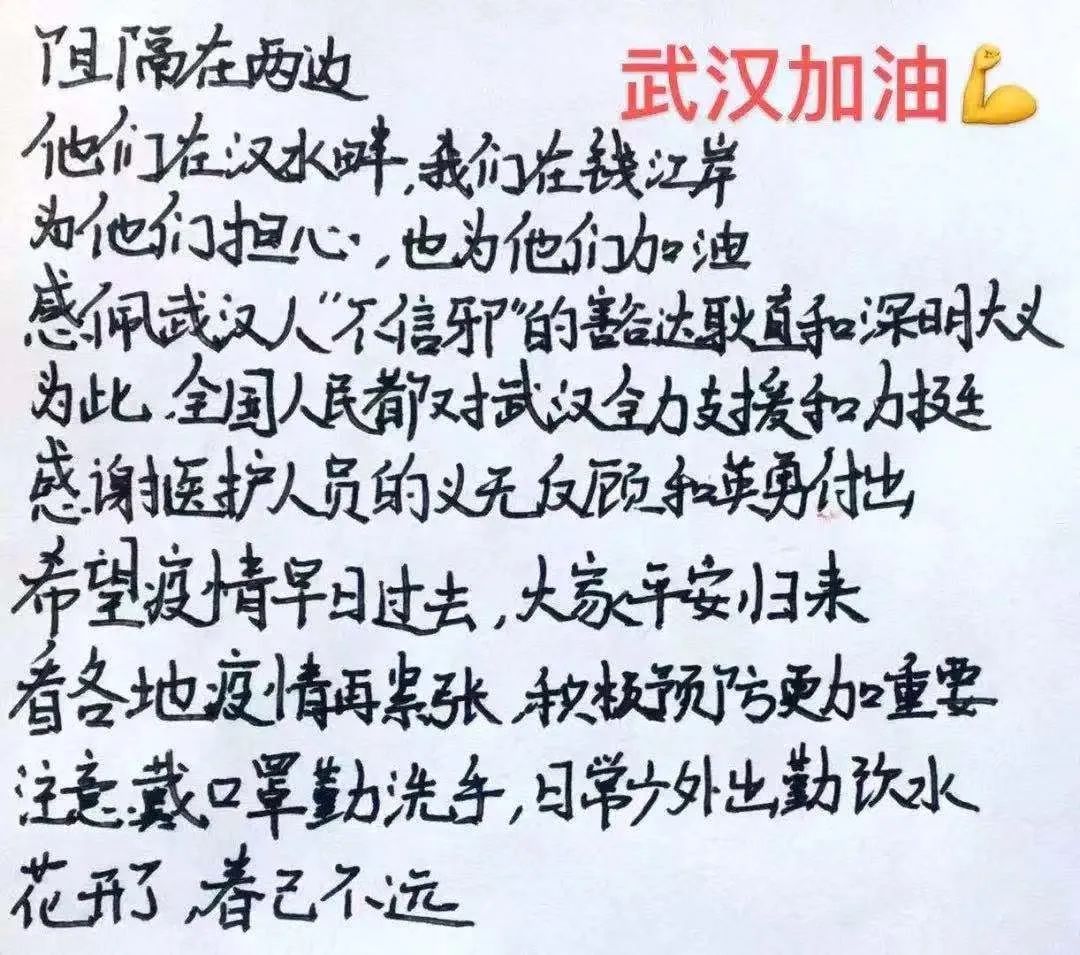 阻隔在两边
武汉加油💪
他们在汉水畔,我们在钱江岸
为他们担心,也为他们加油
感佩武汉人"不信邪"的豁达耿直和深明大义
为此,全国人民都对武汉全力支援和力挺
感谢医护人员的义无反顾和英勇付出
希望疫情早日过去,大家平安归来
看各地疫情再紧张,积极预防更加重要
注意戴口罩勤洗手,日常少外出勤饮水
花开了,春已不远